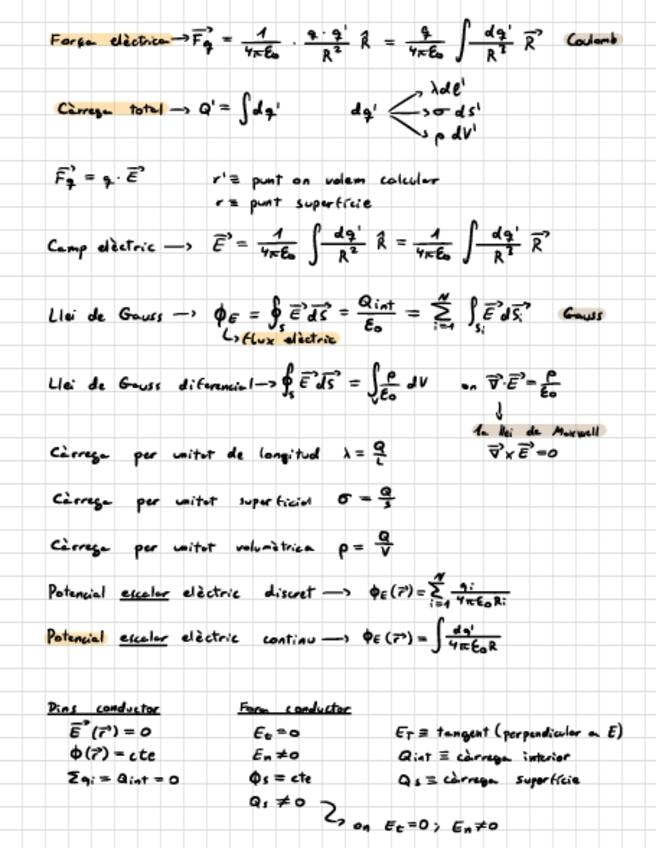 Força elèctrica → F⃗q = 1/4πε₀ · q·q'/R² R̂ = q/4πε₀ ∫ dq'/R³ R⃗   Coulomb
Càrrega total → Q' = ∫dq'   dq' → λdl'
→ σ ds'
→ ρ dV'
F⃗q = q · E⃗   r' ≡ punt on volem calcular
r ≡ punt superfície
Camp elèctric → E⃗ = 1/4πε₀ ∫ dq'/R² R̂ = 1/4πε₀ ∫ dq'/R³ R⃗
Llei de Gauss → ϕE = ∮s E⃗ ds⃗ = Qint/ε₀ = Σ i=1 N ∫si E⃗ ds⃗i   Gauss
↳ flux elèctric
Llei de Gauss diferencial → ∮s E⃗ ds⃗ = ∫v ρ/ε₀ dV   on ∇⃗·E⃗ = ρ/ε₀
↓
1a llei de Maxwell
Càrrega per unitat de longitud λ = Q/L   ∇⃗×E⃗ = 0
Càrrega per unitat superficial σ = Q/S
Càrrega per unitat volumètrica ρ = Q/V
Potencial escalar elèctric discret → ϕE(r⃗) = Σ i=1 N qi/4πε₀Ri
Potencial escalar elèctric continu → ϕE(r⃗) = ∫ dq'/4πε₀R
Dins conductor   Fora conductor
E⃗(r⃗) = 0   Et = 0   ET ≡ tangent (perpendicular a E)
ϕ(r⃗) = cte   En ≠ 0   Qint ≡ càrrega interior
Σqi = Qint = 0   ϕs = cte   Qs ≡ càrrega superfície
Qs ≠ 0
on Et = 0; En ≠ 0